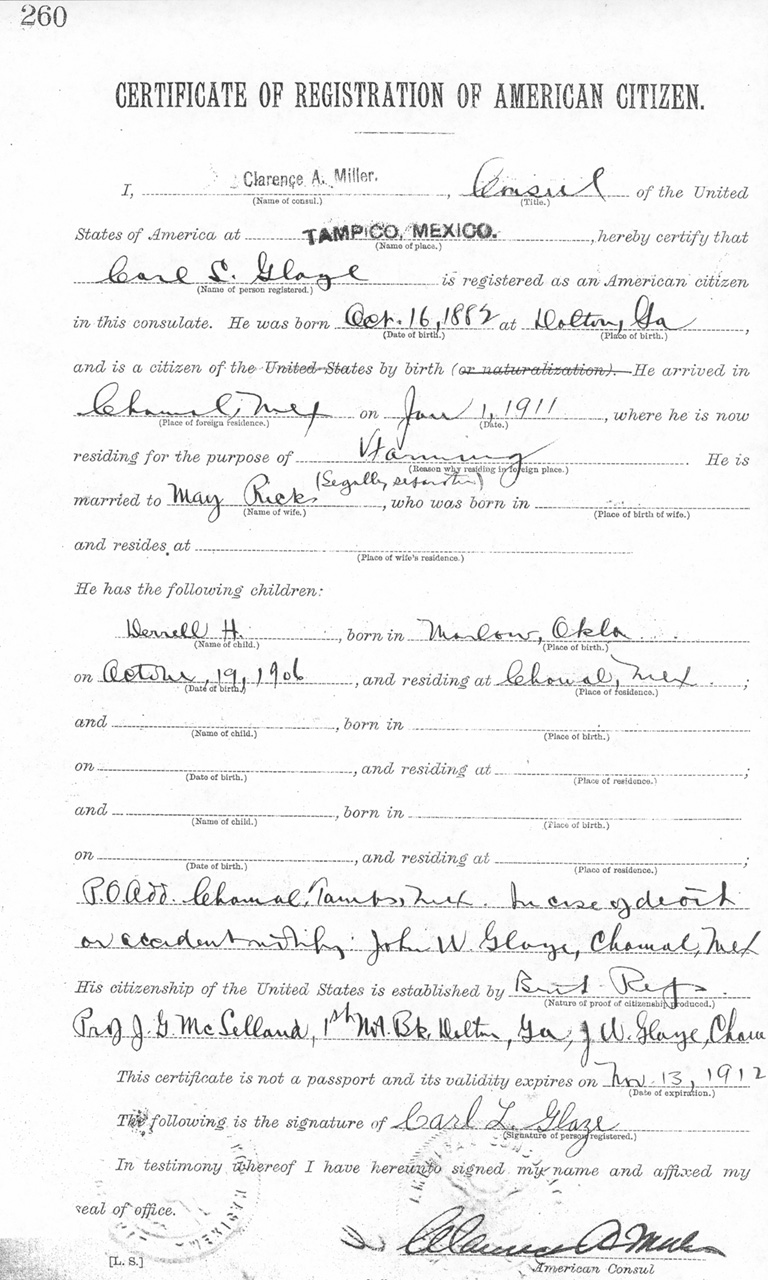 260
CERTIFICATE OF REGISTRATION OF AMERICAN CITIZEN.
I, Clarence A. Miller, Consul of the United
(Name of consul.) (Title.)
States of America at TAMPICO, MEXICO., hereby certify that
(Name of place.)
Carl L. Glaze is registered as an American citizen
(Name of person registered.)
in this consulate. He was born Oct. 16, 1882 at Dalton, Ga,
(Date of birth.) (Place of birth.)
and is a citizen of the United States by birth (or naturalization). He arrived in
Chamal, Mex on Jan 1, 1911, where he is now
(Place of foreign residence.) (Date.)
residing for the purpose of Farming. He is
(Reason why residing in foreign place.)
(Legally separated)
married to May Ricks, who was born in
(Name of wife.) (Place of birth of wife.)
and resides at
(Place of wife's residence.)
He has the following children:
Derrell H. born in Marlow, Okla
(Name of child.) (Place of birth.)
on October, 19, 1906, and residing at Chamal, Mex.;
(Date of birth.) (Place of residence.)
and , born in
(Name of child.) (Place of birth.)
on , and residing at ;
(Date of birth.) (Place of residence.)
and , born in
(Name of child.) (Place of birth.)
on , and residing at ;
(Date of birth.) (Place of residence.)
P.O. Add. Chamal, Tamps, Mex. In case of death
or accident notify John W. Glaze, Chamal, Mex
His citizenship of the United States is established by
(Nature of proof of citizenship produced.)
Prof J. G. McLelland, 1st Nat. Bk. Dalton, Ga, J W. Glaze, Cham
This certificate is not a passport and its validity expires on Nov. 13, 1912
(Date of expiration.)
The following is the signature of Carl L. Glaze
(Signature of person registered.)
In testimony whereof I have hereunto signed my name and affixed my
seal of office.
Clarence A Miller
[L. S.] American Consul